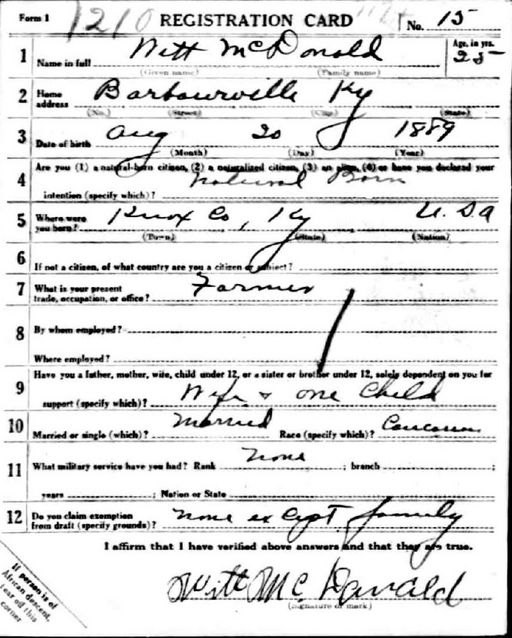 Form 1 1210 REGISTRATION CARD No. 15
1 Name in full Witt McDonald Age, in yrs. 25
(Given name) (Family name)
2 Home address Barbourville Ky
(No.) (Street) (City) (State)
3 Date of birth Aug 20 1889
(Month) (Day) (Year)
4 Are you (1) a natural-born citizen, (2) a naturalized citizen, (3) an alien, (4) or have you declared your
intention (specify which)? Natural Born
5 Where were you born? Knox Co, Ky U.S.A
(Town) (State) (Nation)
6 If not a citizen, of what country are you a citizen or subject?
7 What is your present trade, occupation, or office? Farmer
8 By whom employed?
Where employed?
9 Have you a father, mother, wife, child under 12, or a sister or brother under 12, solely dependent on you for
support (specify which)? Wife & one child
10 Married or single (which)? Married Race (specify which)?
11 What military service have you had? Rank None ; branch ;
years ; Nation or State
12 Do you claim exemption from draft (specify grounds)? None except family
I affirm that I have verified above answers and that they are true.
Witt McDonald
(Signature or mark)
If person is of
African descent,
tear off this
corner